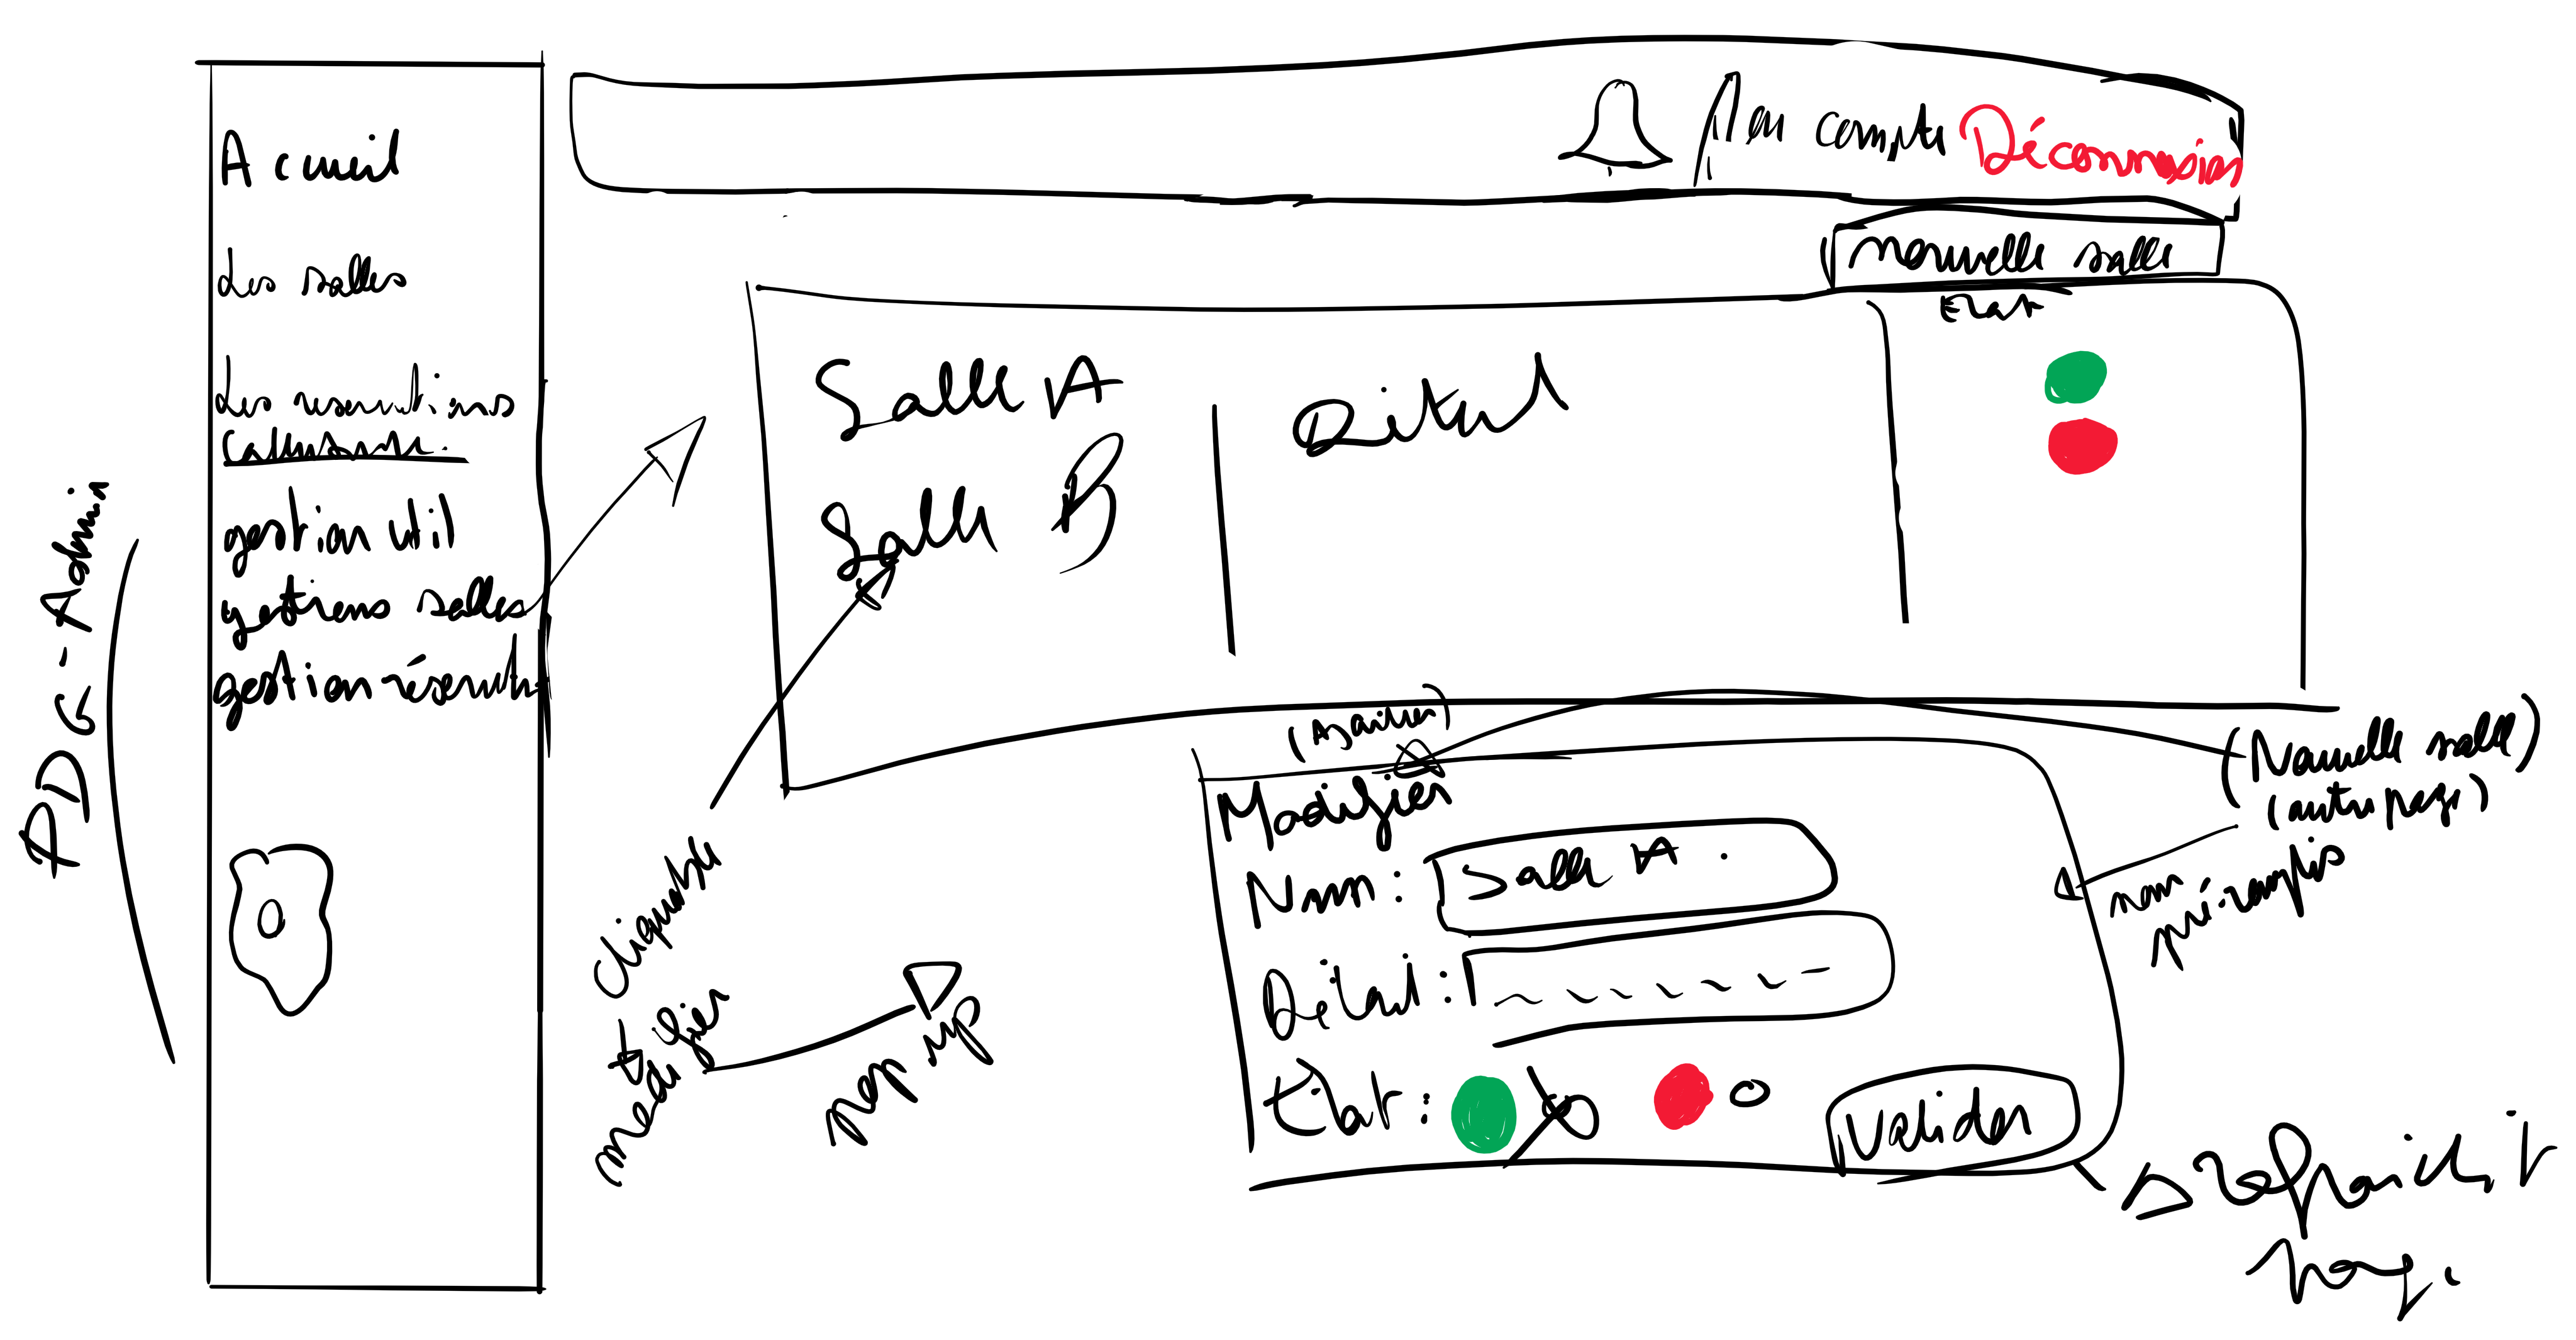 Accueil
Les salles
Les reservations
gestion util
gestions salles
gestion réservat
PDG - Admin
Mon compte Déconnexion
nouvelle salle
Etat
Salle A
Détail
Salle B
cliquable
modifier
pop up
(Ajouter)
Modifier
Nom : Salle A
Détail :
Etat :
Valider
(Nouvelle salle)
(autre page)
non
pré-remplis
rafraichit
page